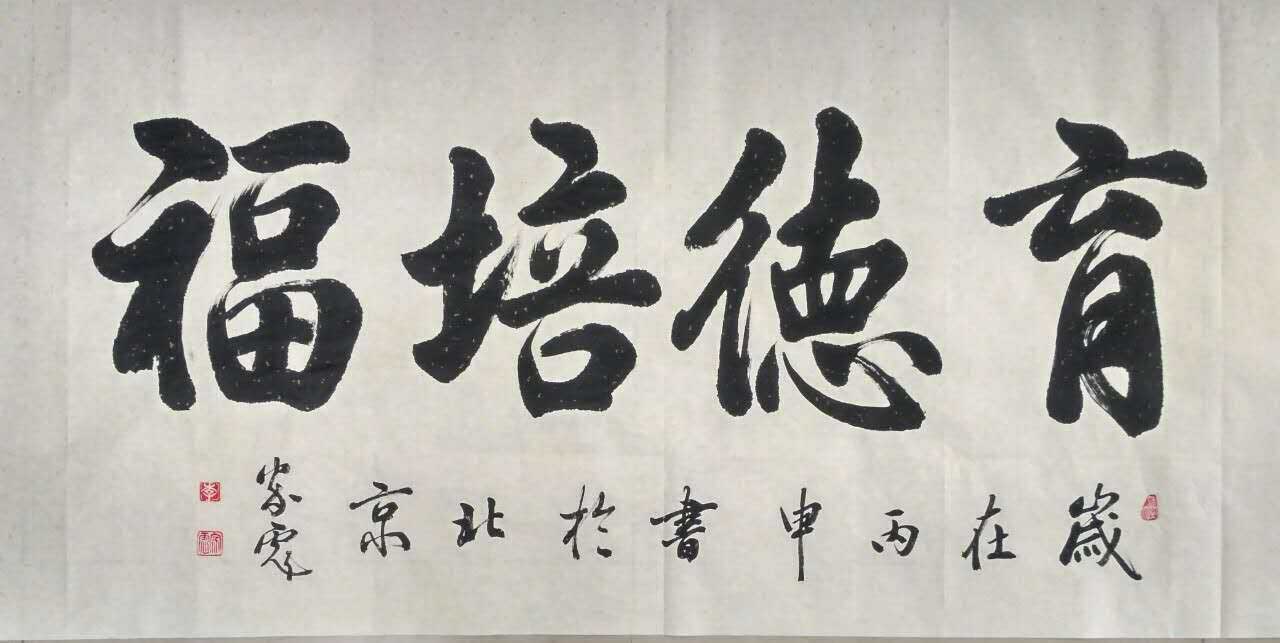 育德培福
歲在丙申書於北京
李